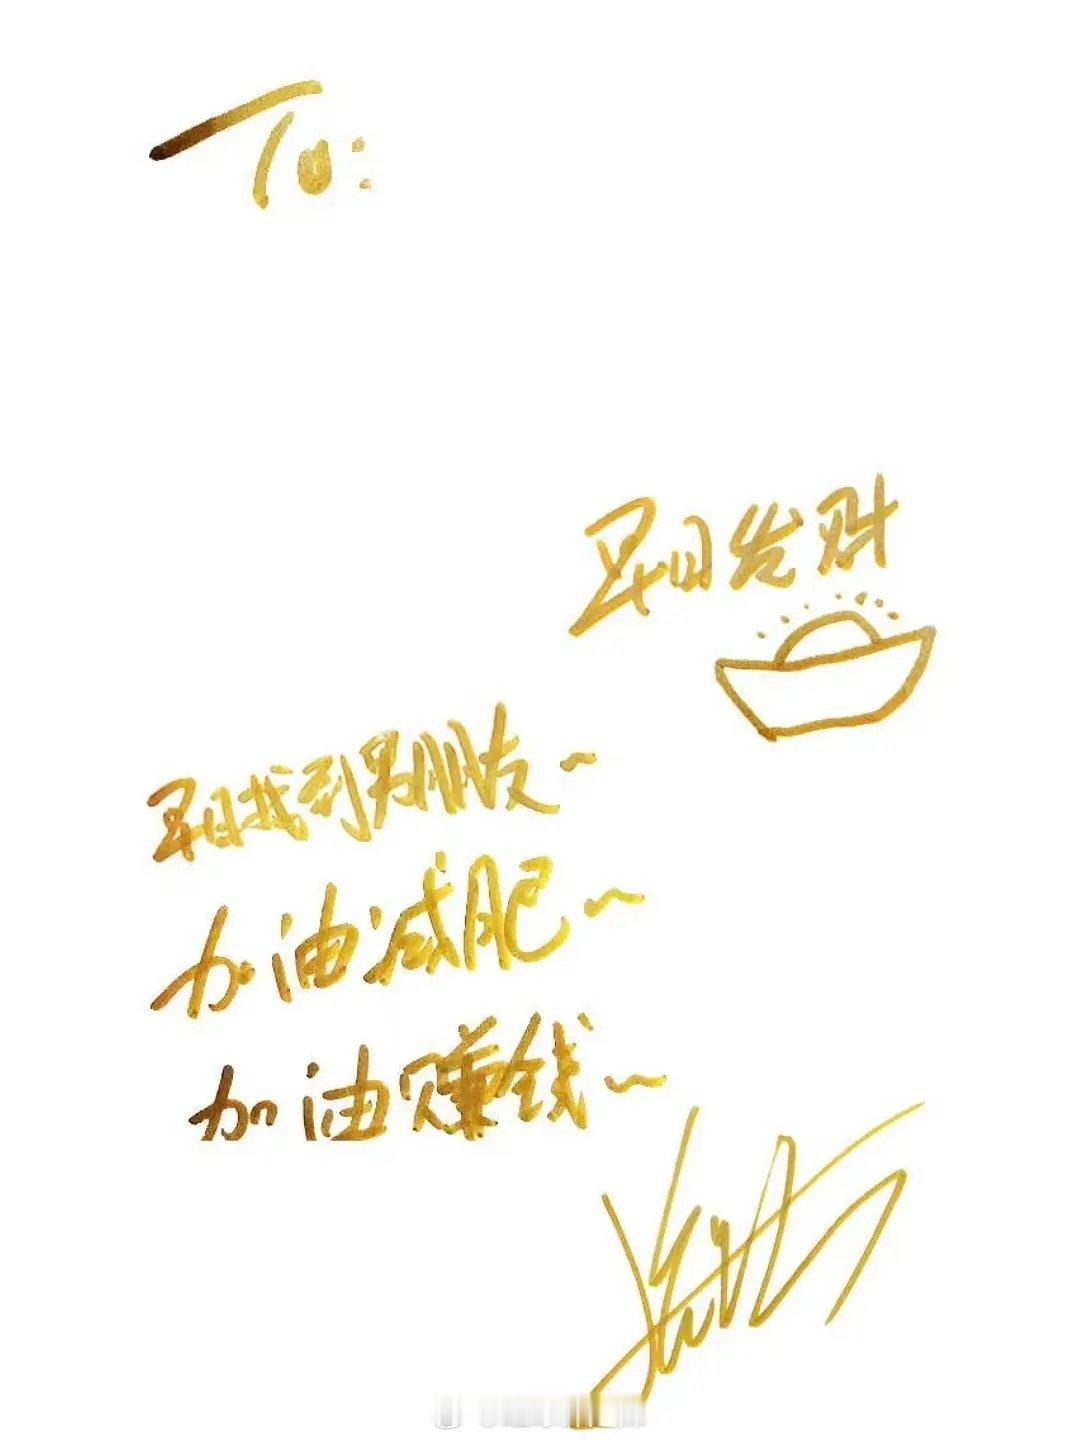 To:
早日发财
早日找到男朋友~
加油减肥~
加油赚钱~